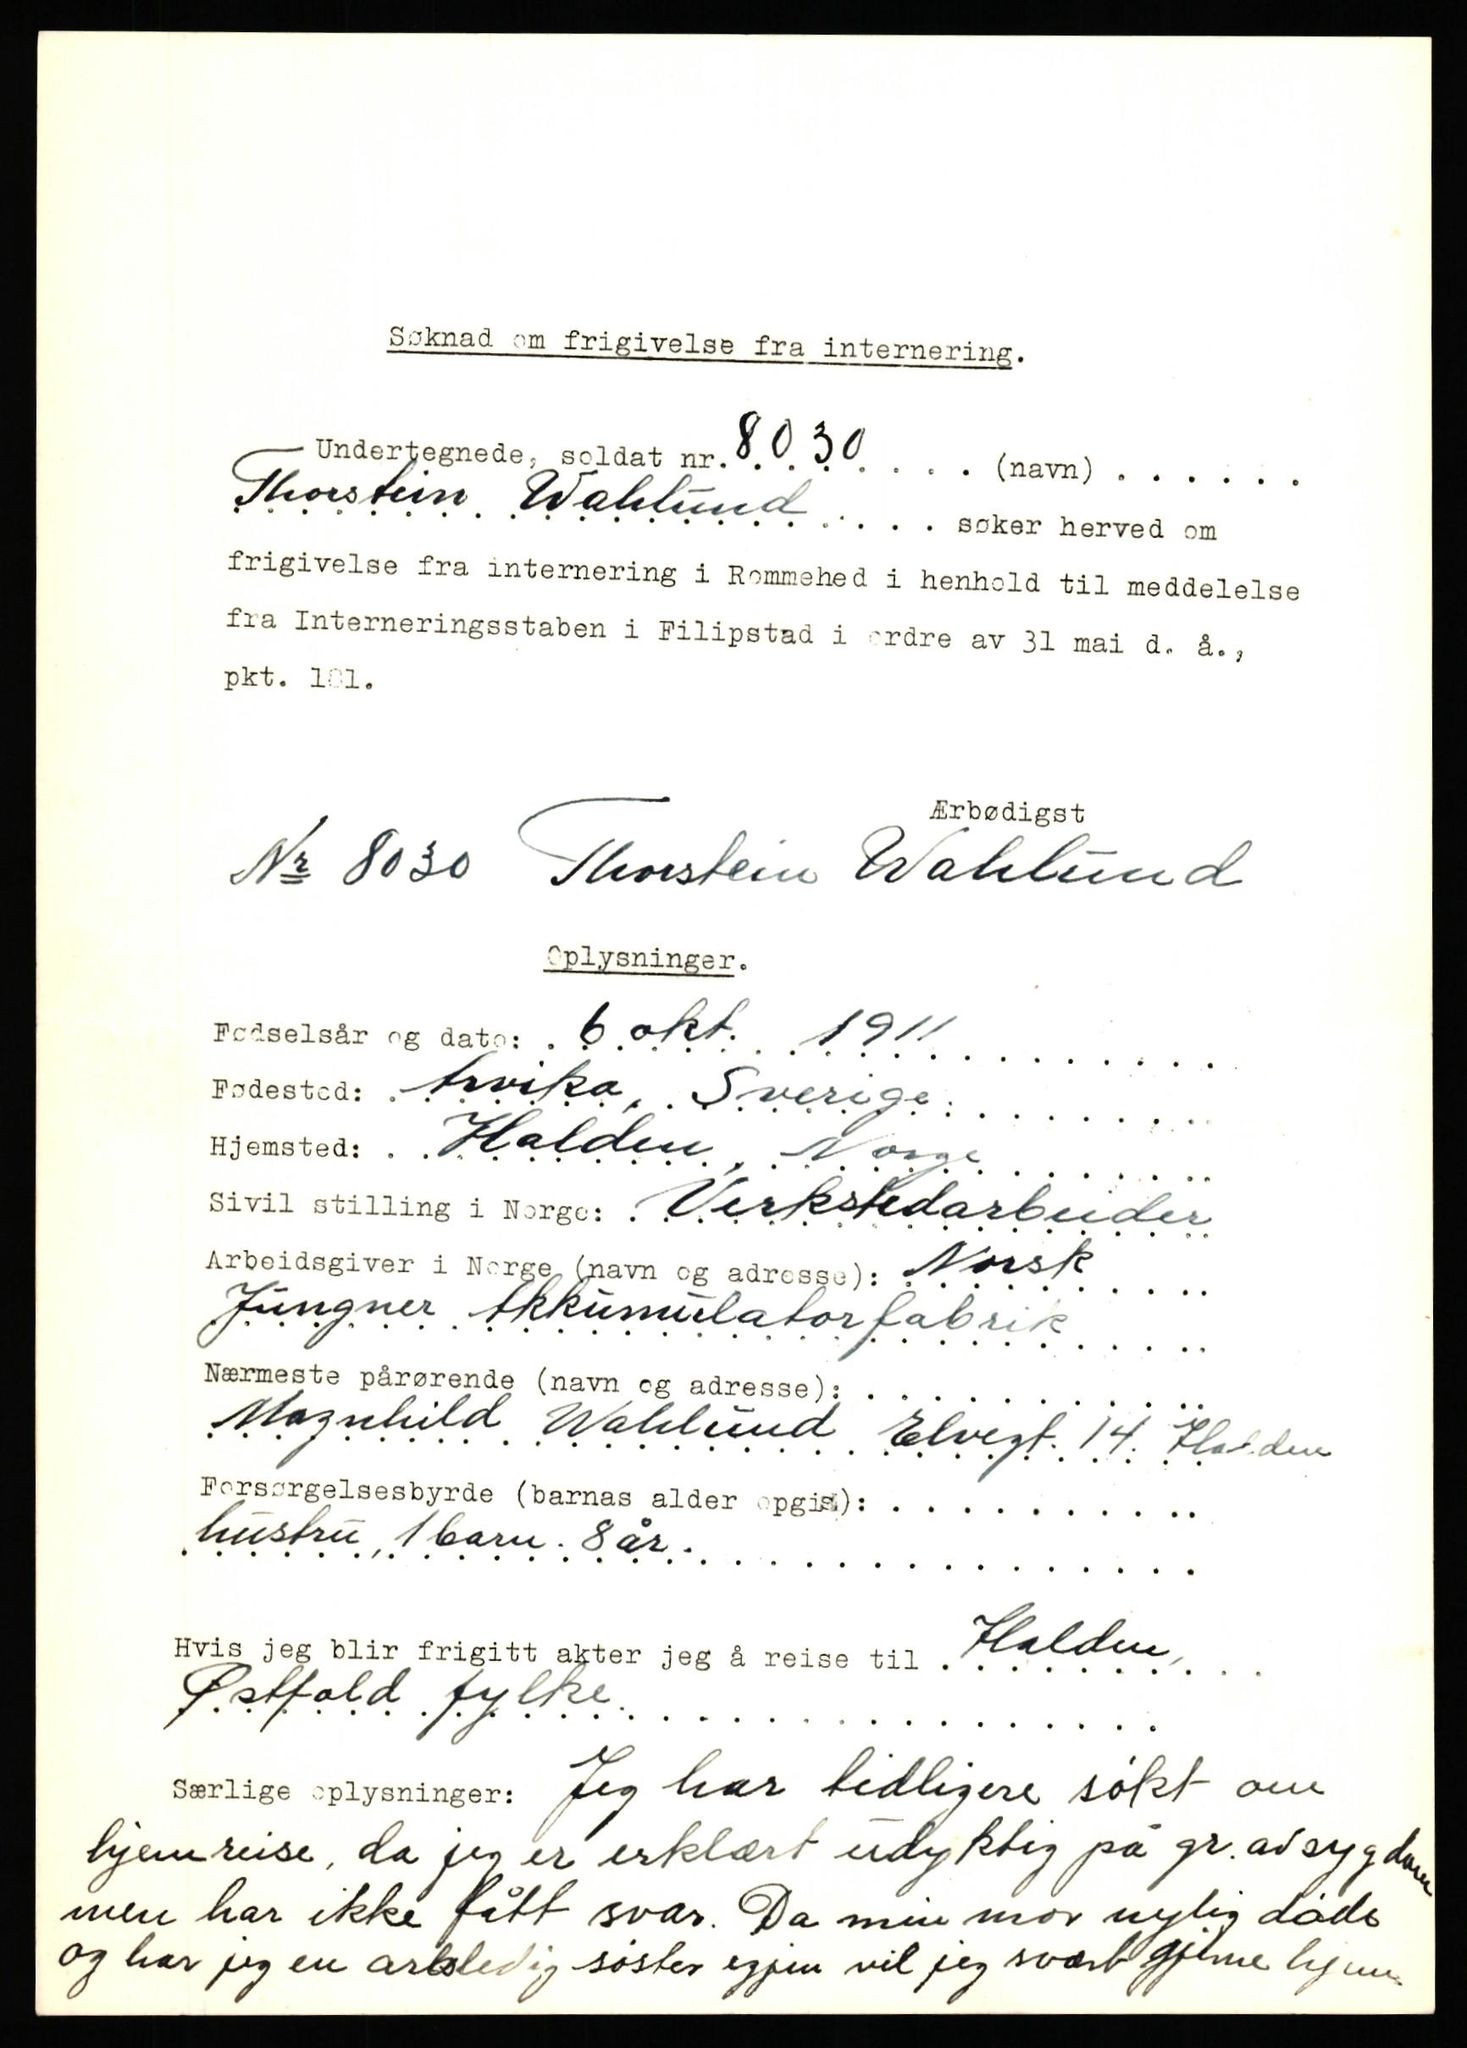 Søknad om frigivelse fra internering.
Undertegnede, soldat nr. 8030 . . . . (navn) . . . . . .
Thorstein Wahlund . . . . søker herved om
frigivelse fra internering i Rommehed i henhold til meddelelse
fra Interneringsstaben i Filipstad i ordre av 31 mai d. å.,
pkt. 101.
Ærbødigst
Nr 8030 Thorstein Wahlund
Oplysninger.
Fødselsår og dato: 6 okt. 1911
Fødested: Arvika, Sverige
Hjemsted: Halden, Norge
Sivil stilling i Norge: Verkstedarbeider
Arbeidsgiver i Norge (navn og adresse): Norsk
Jungner Akkumulatorfabrik
Nærmeste pårørende (navn og adresse):
Magnhild Wahlund Elvegt. 14. Halden
Forsørgelsesbyrde (barnas alder opgis):
hustru, 1 barn. 8 år.
Hvis jeg blir frigitt akter jeg å reise til Halden,
Østfold fylke.
Særlige oplysninger: Jeg har tidligere søkt om
hjemreise, da jeg er erklært udyktig på gr. av sygdom
men har ikke fått svar. Da min mor nylig døde
og har jeg en arbsledig søster igjen vil jeg svært gjerne hjem.